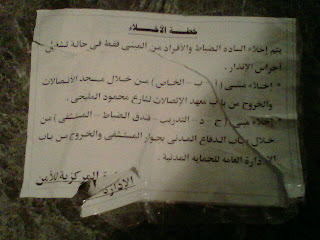 خطة الأخلاء
يتم إخلاء الساده الضباط والأفراد من المبنى فقط فى حالة تشغيل
أجراس الإنذار .
* إخلاء مبنى ( أ - ب - الخاص ) من خلال مسجد الأتصالات
والخروج من باب معهد الإتصالات لشارع محمود المليجى .
إخلاء مبنى ( ج - د - التدريب - فندق الضباط - المستشفى ) من
خلال باب الدفاع المدنى بجوار المستشفى والخروج من باب
الإدارة العامه للحمايه المدنية .
الإدارة المركزية للأمن